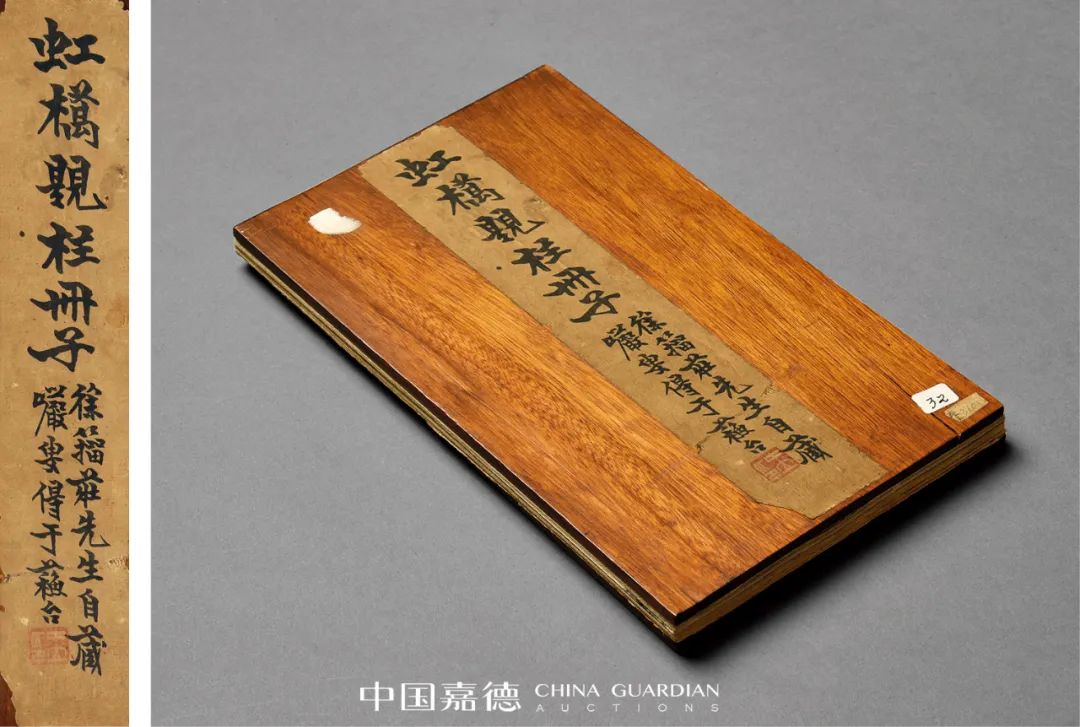 虹橋題柱冊子
徐籀莊先生自藏
嚴叟得于蘓台
虹橋題柱冊子
徐籀莊先生自藏
嚴叟得于蘓台
32
中国嘉德 CHINA GUARDIAN
AUCTIONS